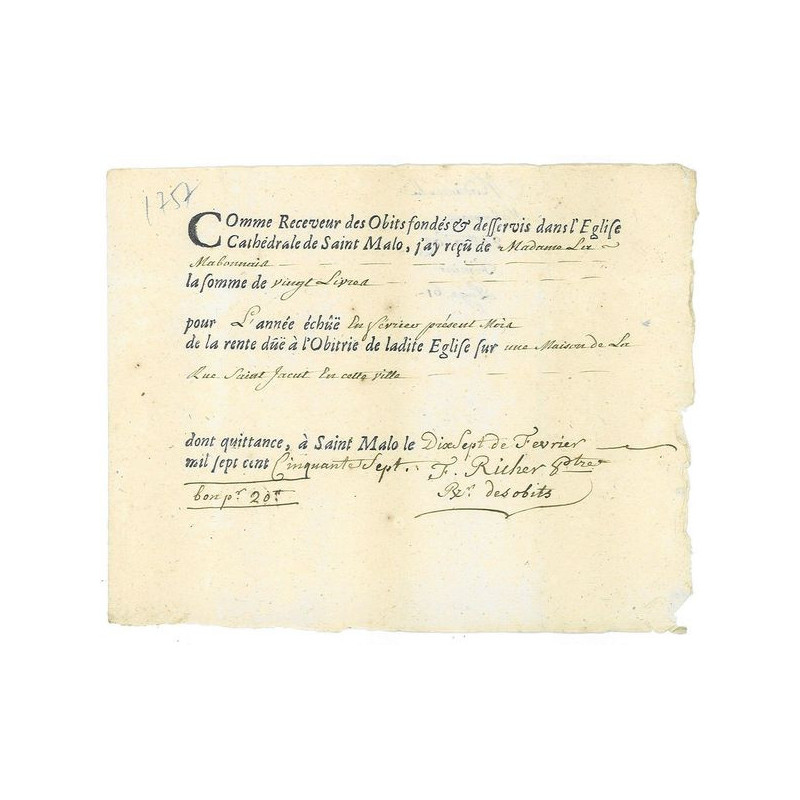 1757
COmme Receveur des Obits fondés & desservis dans l'Eglise
Cathédrale de Saint Malo, j'ay reçû de Madame La
Mabonnais
la somme de vingt Livres
pour L'année échûë En février présent Mois
de la rente dûë à l'Obitrie de ladite Eglise sur une Maison de La
Rue Saint Jacut En cette ville
dont quittance, à Saint Malo le Dix Sept de Fevrier
mil sept cent Cinquante Sept. F. Richer ptre
bon pr. 20tt Rr. des obits